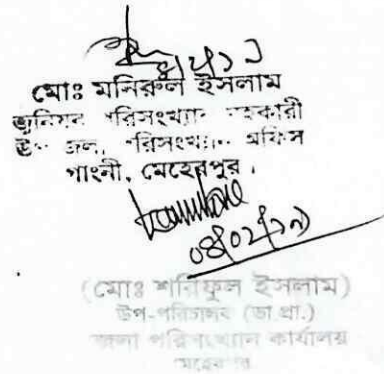 মোঃ মনিরুল ইসলাম
জুনিয়র পরিসংখ্যান সহকারী
উপজেলা পরিসংখ্যান অফিস
গাংনী, মেহেরপুর।
(মোঃ শরিফুল ইসলাম)
উপ-পরিচালক (ভা.প্রা.)
জেলা পরিসংখ্যান কার্যালয়
মেহেরপুর